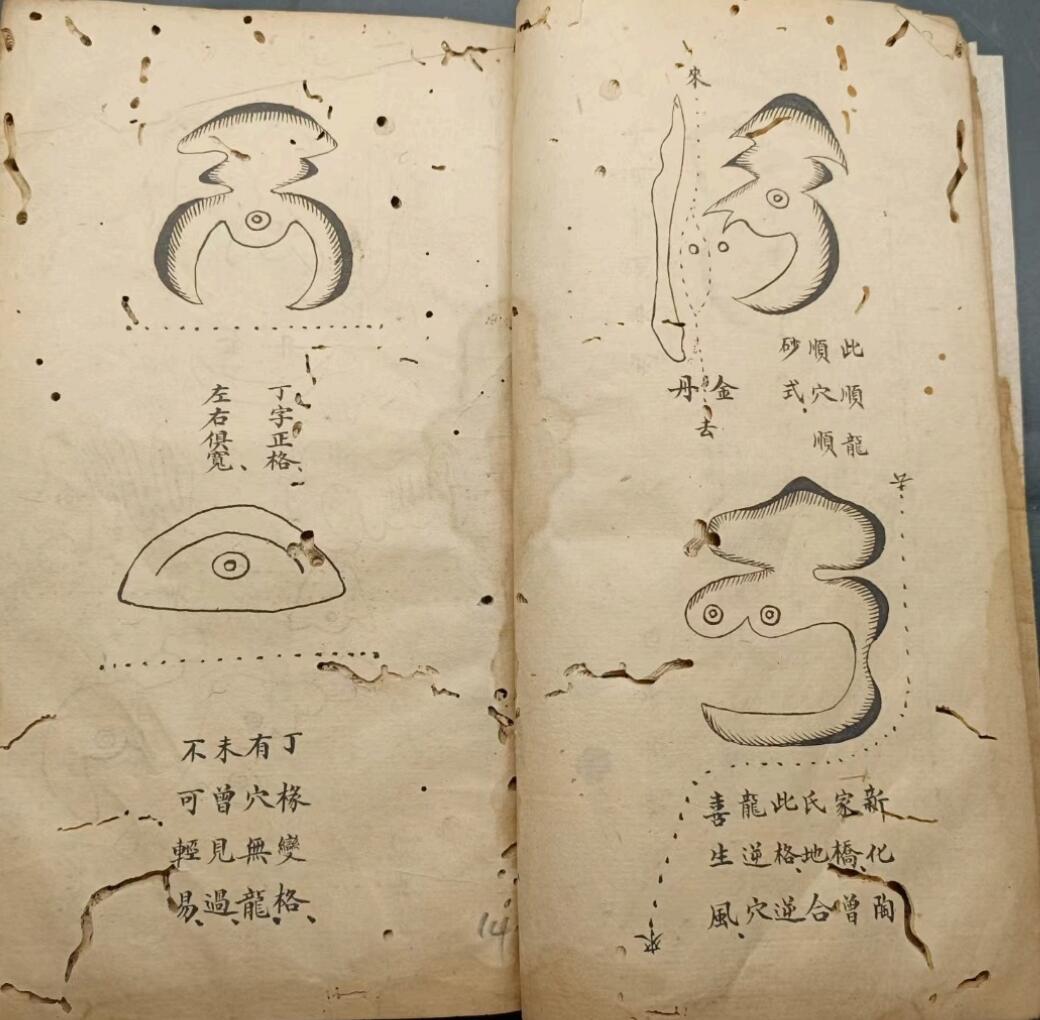 來
此順龍
順穴順
砂式
金丹
去
去
新化陶
家橋曾
氏地合
此格逆
龍逆穴
喜生風
來
丁字正格
左右俱寬
丁椽變格
有穴無龍
未曾見過
不可輕易
14